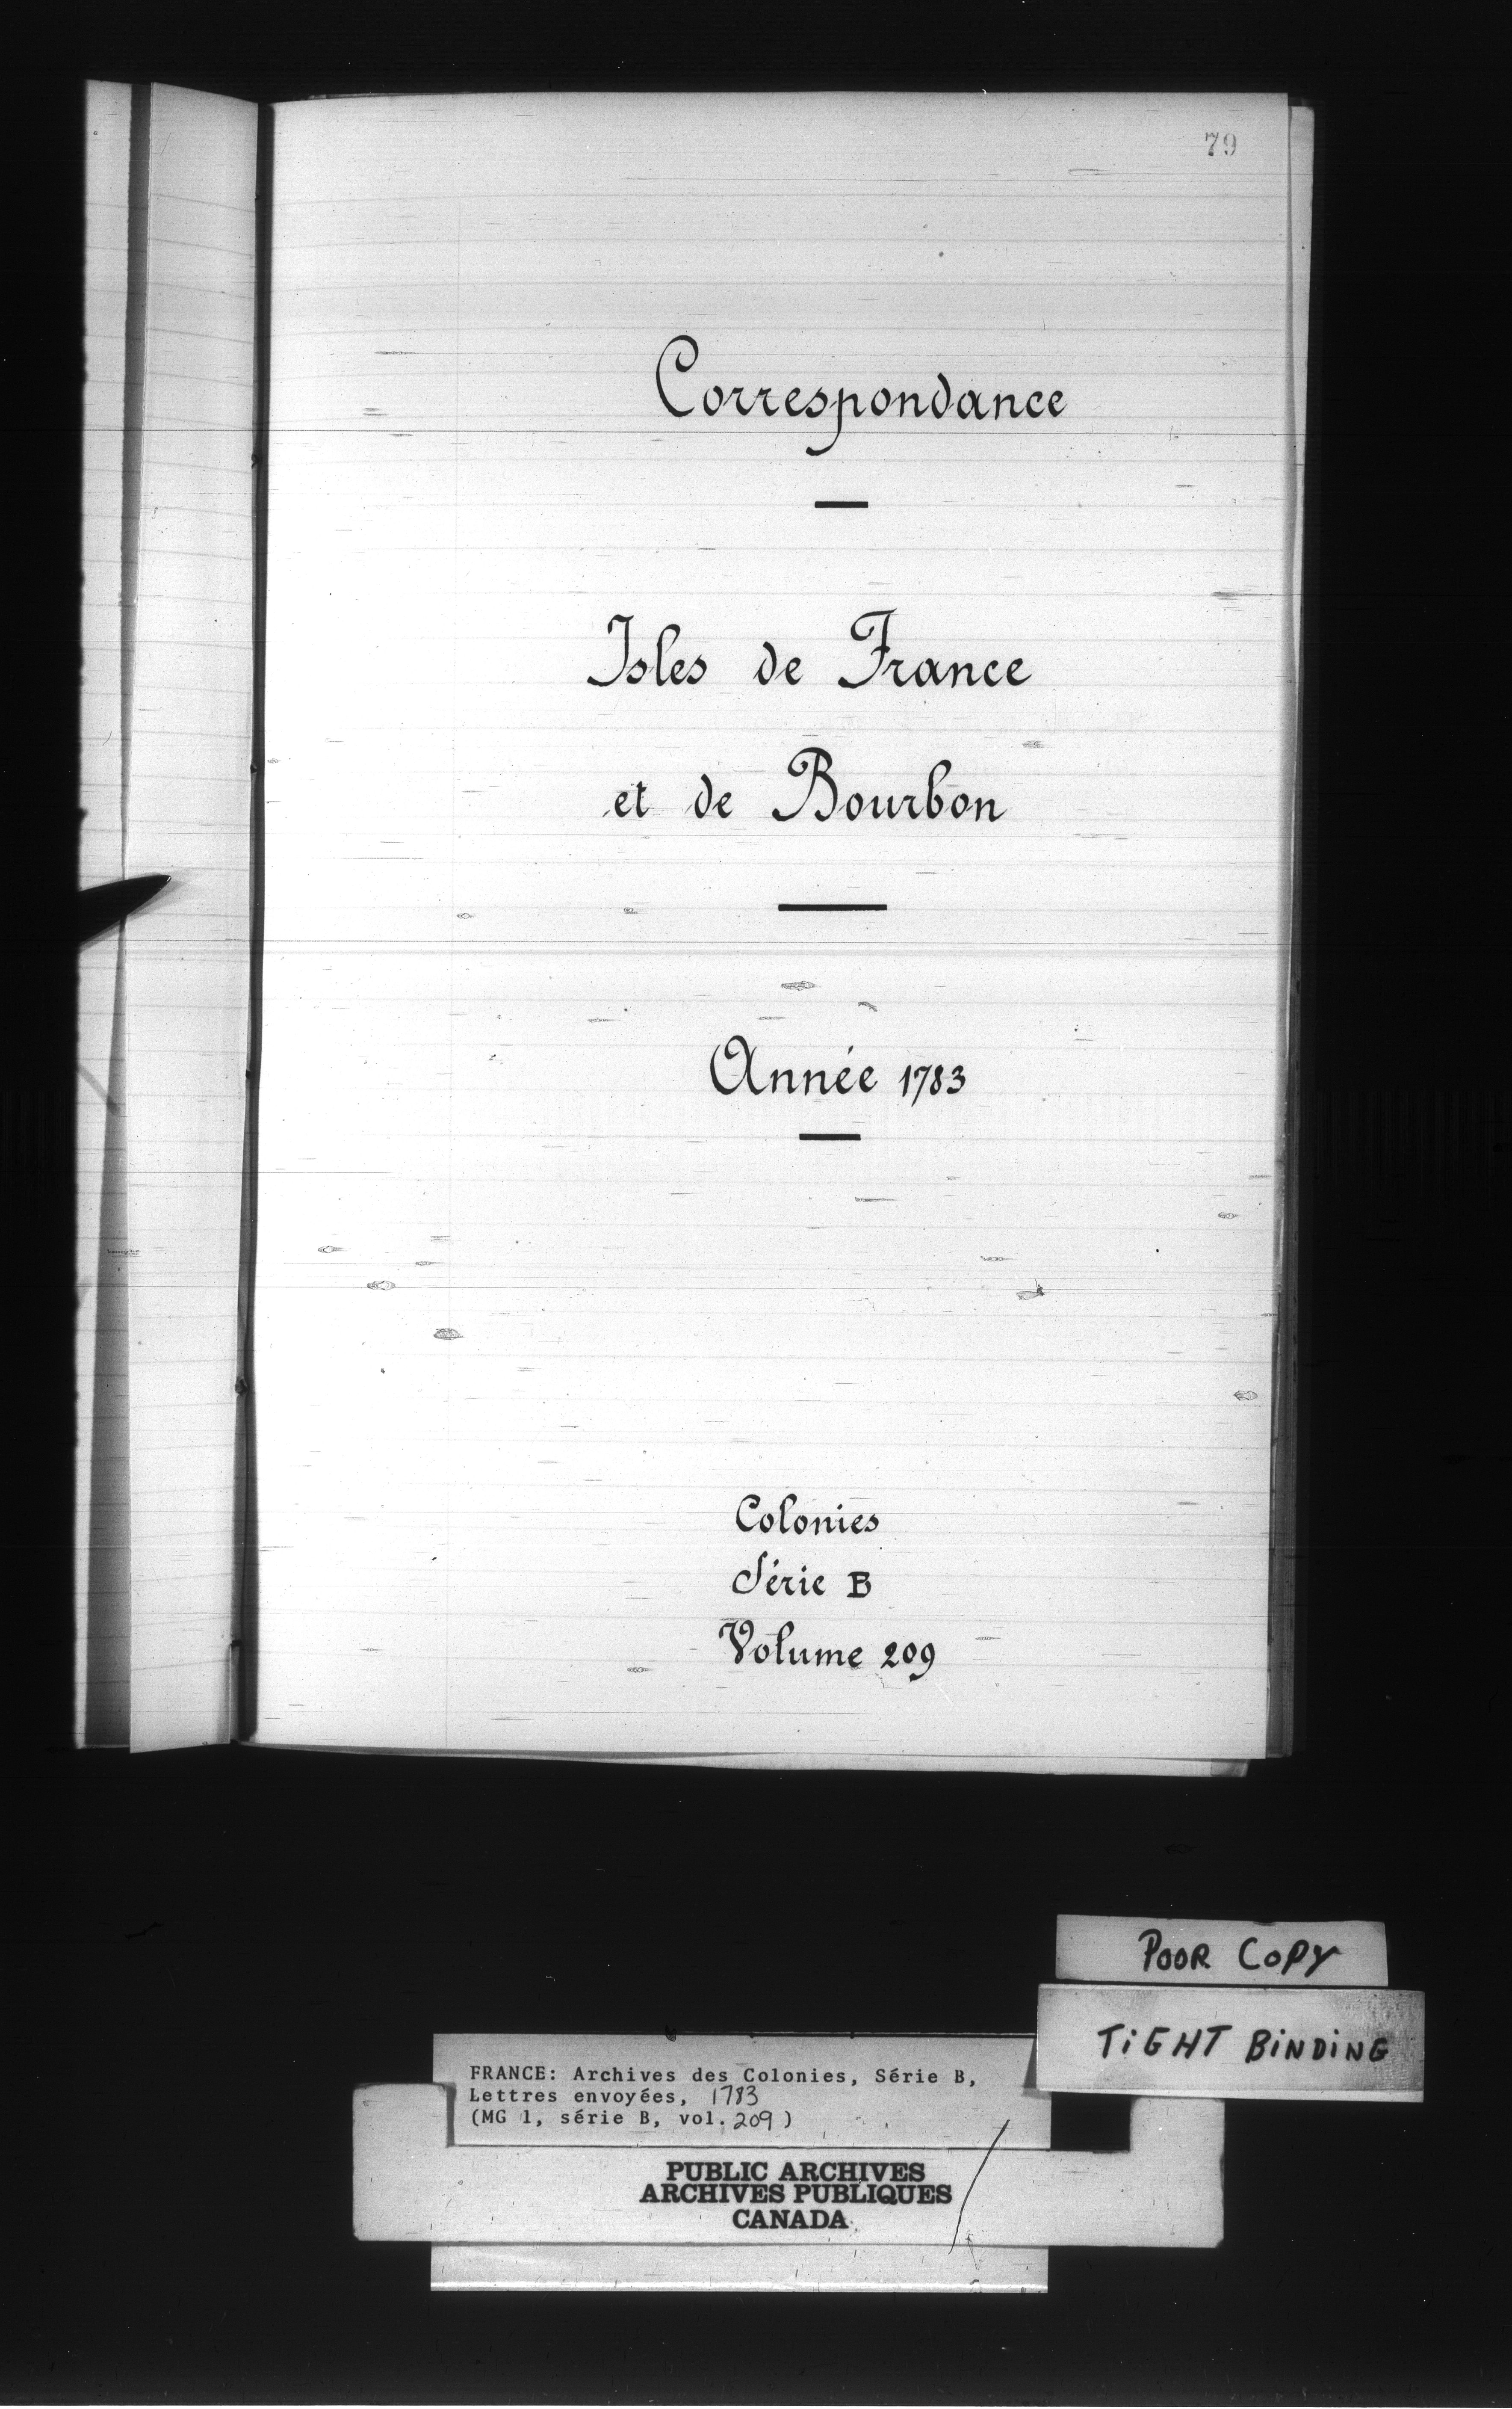 79
Correspondance
Isles de France
et de Bourbon
Année 1783
Colonies
Série B
Volume 209
POOR COPY
TiGHT BiNDiNG
FRANCE: Archives des Colonies, Série B,
Lettres envoyées, 1783
(MG 1, série B, vol. 209)
PUBLIC ARCHIVES
ARCHIVES PUBLIQUES
CANADA